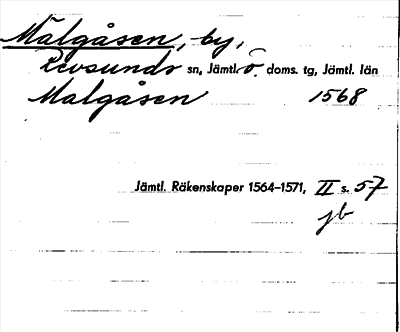 Målgåsen, by,
Revsunds sn, Jämtl. ö. doms. tg, Jämtl. län
Malgåsen 1568
Jämtl. Räkenskaper 1564–1571, II s. 57
jb